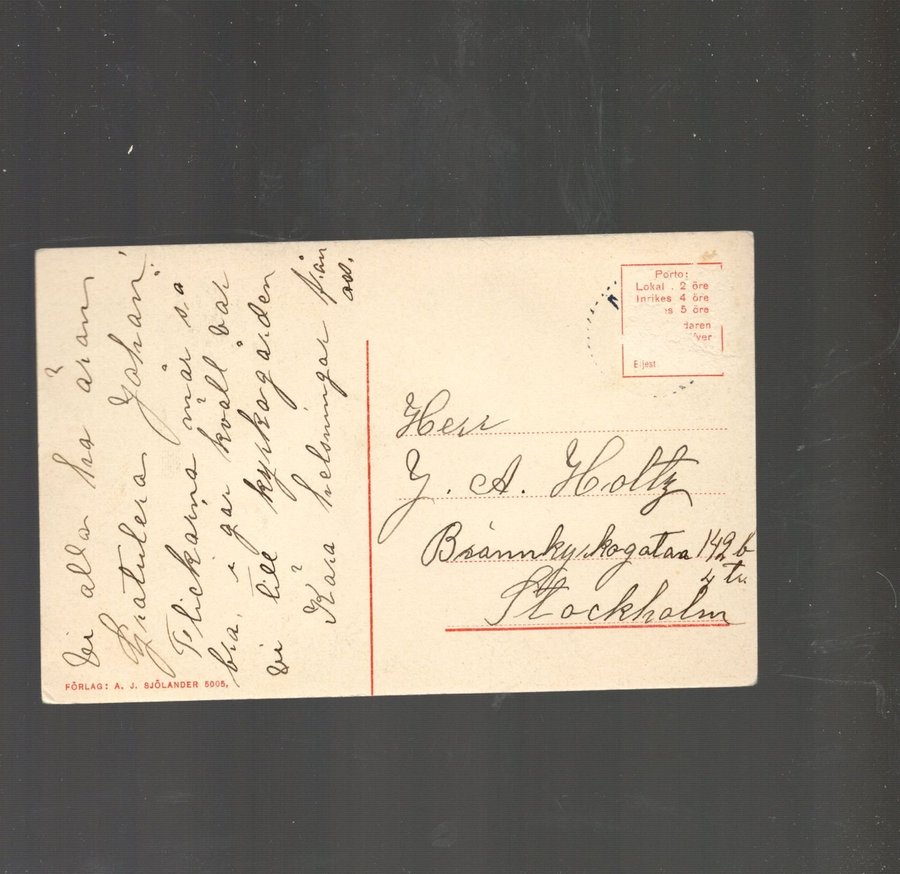 Vi alla ha äran
Gratulera Johan!
Flickorna mår så
bra, i går kväll var
vi till kyrkogården
Kära helsningar från
oss.
FÖRLAG: A. J. SJÖLANDER 5005.
Porto:
Lokal . 2 öre
Inrikes 4 öre
es 5 öre
daren
Herr
J. A. Holtz
Brännkyrkogatan 142 b
tr.
Stockholm